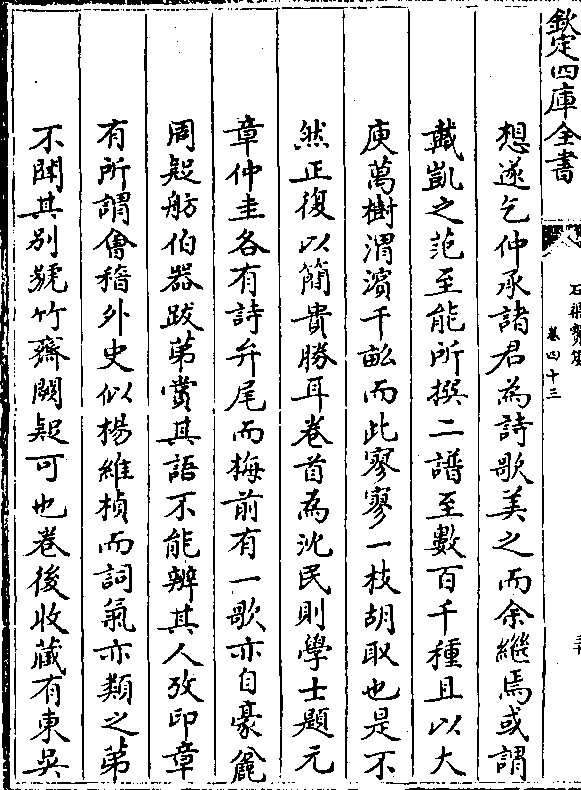 欽定四庫全書
石渠寶笈
卷四十三
想遂乞仲承諸君為詩歌美之而余繼焉或謂
戴凱之范至能所撰二譜至數百千種且以大
庾萬樹渭濱千畝而此寥寥一枝胡取也是不
然正復以簡貴勝耳卷首為沈民則學士題元
章仲圭各有詩弁尾而梅前有一歌亦自豪麗
周疑舫伯器跋第賞其語不能辨其人攷印章
有所謂會稽外史似楊維楨而詞氣亦類之第
不聞其别號竹齋闕疑可也卷後收藏有東吳